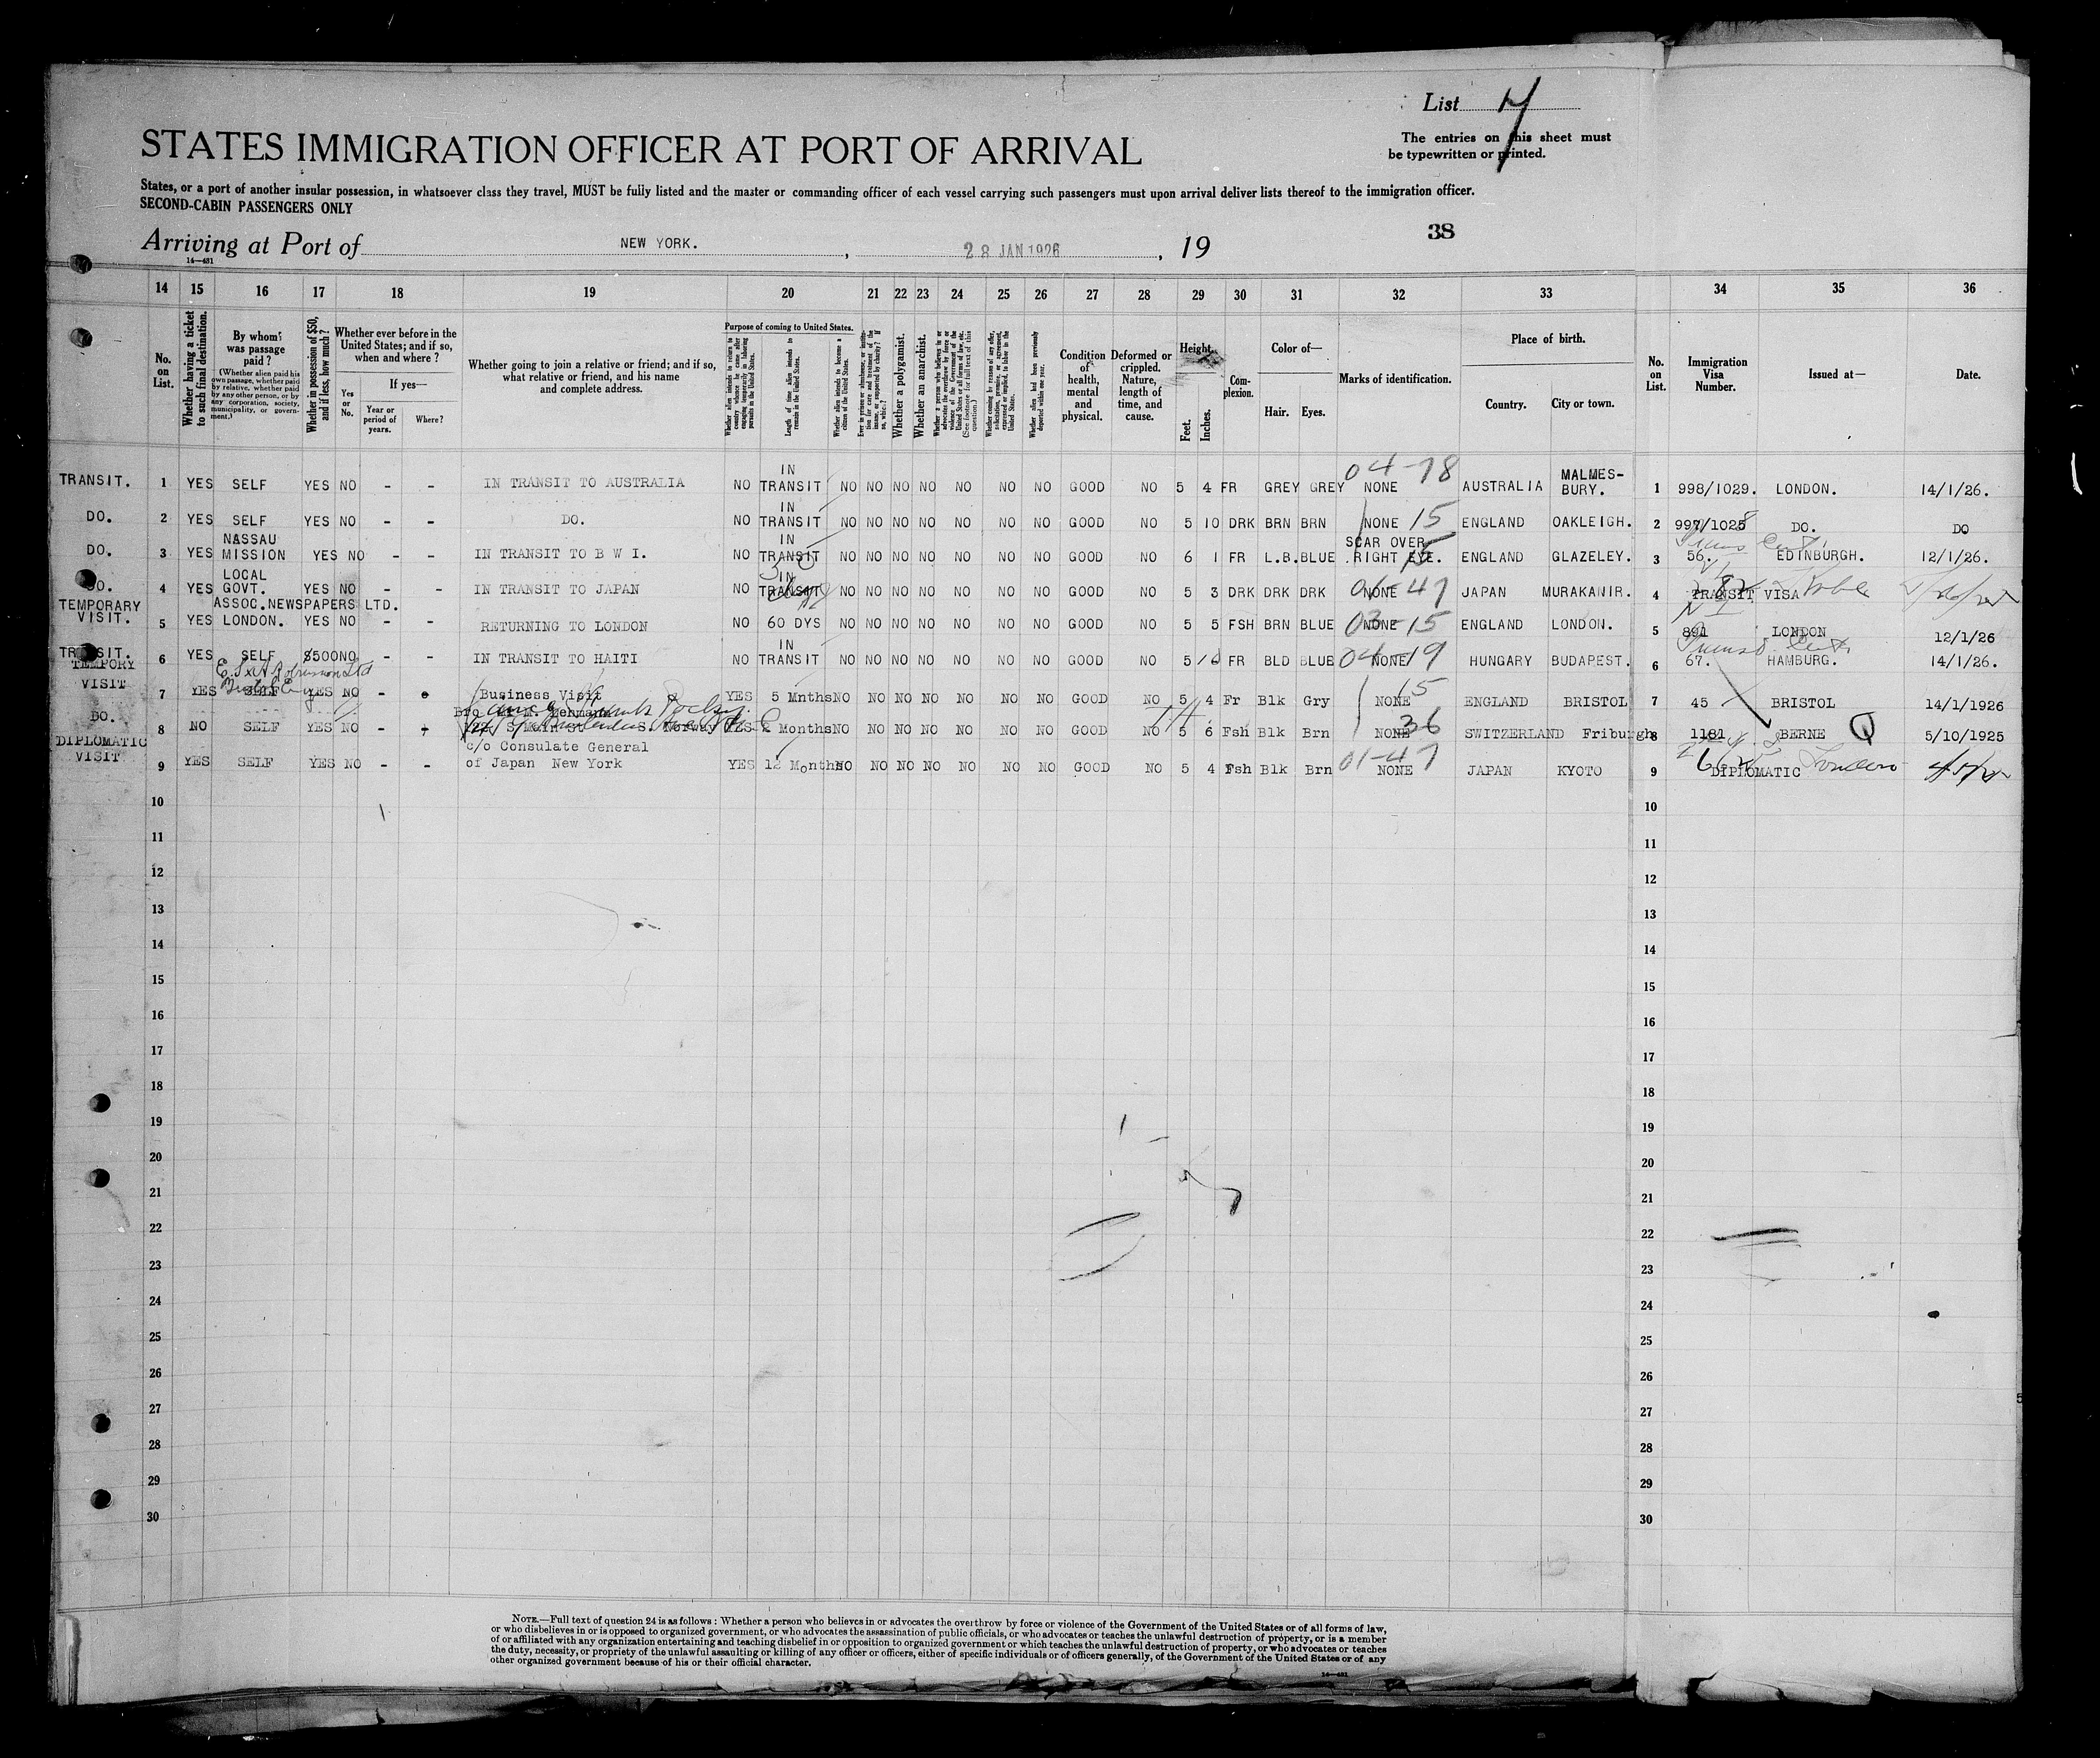 List 4
The entries on this sheet must
be typewritten or printed.
STATES IMMIGRATION OFFICER AT PORT OF ARRIVAL
States, or a port of another insular possession, in whatsoever class they travel, MUST be fully listed and the master or commanding officer of each vessel carrying such passengers must upon arrival deliver lists thereof to the immigration officer.
SECOND-CABIN PASSENGERS ONLY
38
Arriving at Port of NEW YORK. , 28 JAN 1926 , 19
14-481
14 15 16 17 18 19 20 21 22 23 24 25 26 27 28 29 30 31 32 33 34 35 36
No. on List.
Whether having a ticket to such final destination.
By whom was passage paid?
(Whether alien paid his own passage, whether paid by relative, whether paid by any other person, or by any corporation, society, municipality, or government.)
Whether in possession of $50, and if less, how much?
Whether ever before in the United States; and if so, when and where?
Yes or No.
If yes—
Year or period of years.
Where?
Whether going to join a relative or friend; and if so, what relative or friend, and his name and complete address.
Purpose of coming to United States.
Length of time alien intends to remain in the United States.
Whether a polygamist.
Whether an anarchist.
Condition of health, mental and physical.
Deformed or crippled. Nature, length of time, and cause.
Height.
Feet.
Inches.
Complexion.
Color of—
Hair. Eyes.
Marks of identification.
Place of birth.
Country. City or town.
No. on List.
Immigration Visa Number.
Issued at—
Date.
TRANSIT. 1 YES SELF YES NO - - IN TRANSIT TO AUSTRALIA NO IN TRANSIT NO NO NO NO NO NO NO GOOD NO 5 4 FR GREY GREY NONE 04-78 AUSTRALIA MALMES-BURY. 1 998/1029. LONDON. 14/1/26.
DO. 2 YES SELF YES NO - - DO. NO IN TRANSIT NO NO NO NO NO NO NO GOOD NO 5 10 DRK BRN BRN NONE 15 ENGLAND OAKLEIGH. 2 997/1028 DO. DO
DO. 3 YES NASSAU MISSION YES NO - - IN TRANSIT TO B W I. NO IN TRANSIT NO NO NO NO NO NO NO GOOD NO 6 1 FR L.B. BLUE SCAR OVER RIGHT EYE. 15 ENGLAND GLAZELEY. 3 56. EDINBURGH. 12/1/26.
DO. 4 YES LOCAL GOVT. YES NO - IN TRANSIT TO JAPAN NO IN TRANSIT NO NO NO NO NO NO NO GOOD NO 5 3 DRK DRK DRK NONE 01-47 JAPAN MURAKANIR. 4 TRANSIT VISA Kobe
TEMPORARY VISIT. 5 YES ASSOC.NEWSPAPERS LTD. LONDON. YES NO - - RETURNING TO LONDON NO 60 DYS NO NO NO NO NO NO NO GOOD NO 5 5 FSH BRN BLUE NONE 03-15 ENGLAND LONDON. 5 891 LONDON 12/1/26
TRANSIT. 6 YES SELF $500 NO - - IN TRANSIT TO HAITI NO IN TRANSIT NO NO NO NO NO NO NO GOOD NO 5 FR BLD BLUE NONE 04-19 HUNGARY BUDAPEST. 6 67. HAMBURG. 14/1/26.
TEMPORY VISIT 7 YES SELF YES NO - Business Visit YES 5 Mnths NO NO NO NO NO NO NO GOOD NO 5 4 Fr Blk Gry NONE 15 ENGLAND BRISTOL 7 45 BRISTOL 14/1/1926
DO. 8 NO SELF YES NO - S. Norway YES Months NO NO NO NO NO NO NO GOOD NO 5 6 Fsh Blk Brn NONE 36 SWITZERLAND Friburgh 8 1181 BERNE 5/10/1925
DIPLOMATIC VISIT 9 YES SELF YES NO - - c/o Consulate General of Japan New York YES 12 Months NO NO NO NO NO NO NO GOOD NO 5 4 Fsh Blk Brn NONE 01-47 JAPAN KYOTO 9 DIPLOMATIC London
10 10
11 11
12 12
13 13
14 14
15 15
16 16
17 17
18 18
19 19
20 20
21 21
22 22
23 23
24 24
25 25
26 26
27 27
28 28
29 29
30 30
NOTE.—Full text of question 24 is as follows: Whether a person who believes in or advocates the overthrow by force or violence of the Government of the United States or of all forms of law,
or who disbelieves in or is opposed to organized government, or who advocates the assassination of public officials, or who advocates or teaches the unlawful destruction of property, or is a member
of or affiliated with any organization entertaining and teaching disbelief in or opposition to organized government or which teaches the unlawful destruction of property, or who advocates or teaches
the duty, necessity, or propriety of the unlawful assaulting or killing of any officer or officers, either of specific individuals or of officers generally, of the Government of the United States or of any
other organized government because of his or their official character.
14-481